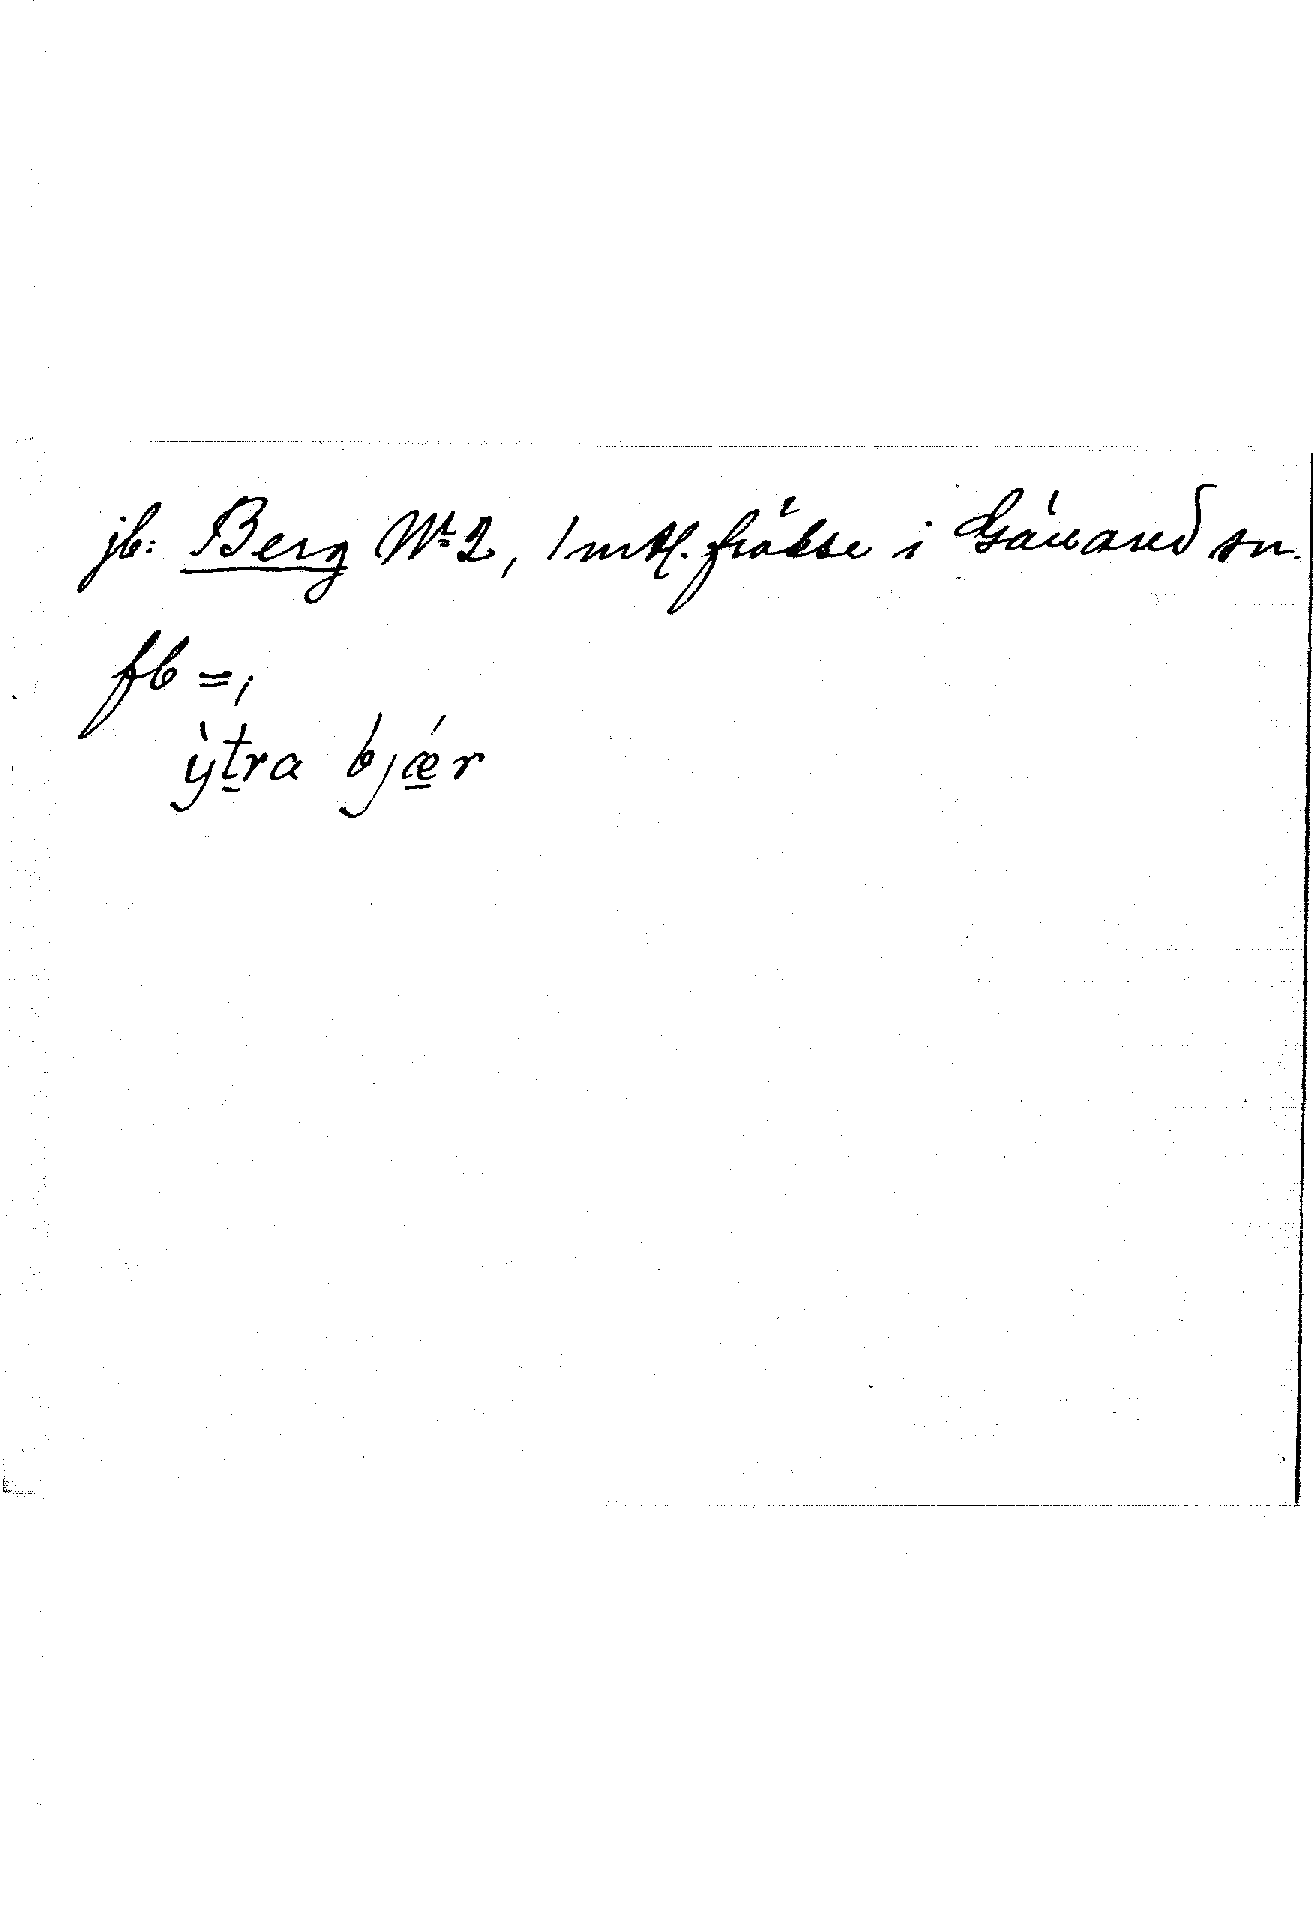 jb: Berg Nr 2, 1 mtl. frälse i Gällared sn.
fb =,
ỳtra bjǽr